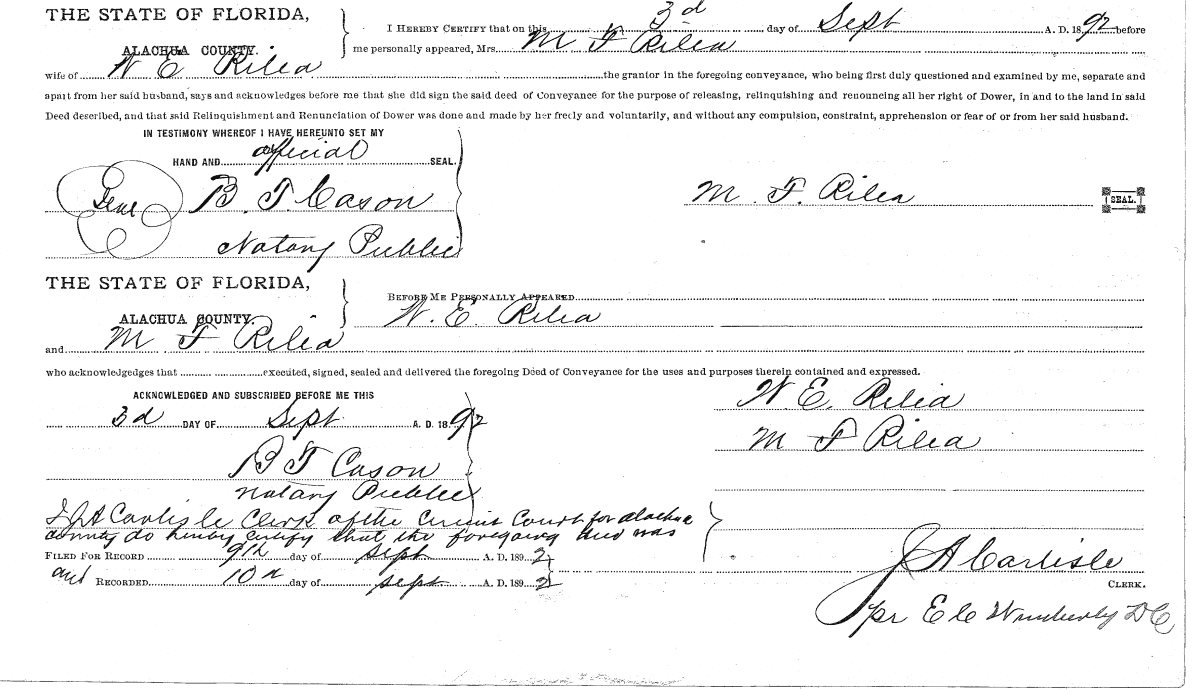 THE STATE OF FLORIDA,
ALACHUA COUNTY.
I HEREBY CERTIFY that on this 3d day of Sept A. D. 1892 before
me personally appeared, Mrs. M F Rilea
wife of W E Rilea the grantor in the foregoing conveyance, who being first duly questioned and examined by me, separate and
apart from her said husband, says and acknowledges before me that she did sign the said deed of Conveyance for the purpose of releasing, relinquishing and renouncing all her right of Dower, in and to the land in said
Deed described, and that said Relinquishment and Renunciation of Dower was done and made by her freely and voluntarily, and without any compulsion, constraint, apprehension or fear of or from her said husband.
IN TESTIMONY WHEREOF I HAVE HEREUNTO SET MY
HAND AND official SEAL.
Seal B. T. Cason
Notary Public
M. F. Rilea SEAL.
THE STATE OF FLORIDA,
ALACHUA COUNTY.
BEFORE ME PERSONALLY APPEARED
W. E. Rilea
and M F Rilea
who acknowledgedges that executed, signed, sealed and delivered the foregoing Deed of Conveyance for the uses and purposes therein contained and expressed.
ACKNOWLEDGED AND SUBSCRIBED BEFORE ME THIS
3d DAY OF Sept A. D. 1892
B T Cason
Notary Public
W. E. Rilea
M F Rilea
I J A Carlisle Clerk of the Circuit Court for Alachua
County do hereby certify that the foregoing deed was
FILED FOR RECORD 9th day of Sept A. D. 1892
and RECORDED 10th day of Sept A. D. 1892
J A Carlisle
CLERK.
pr E C Wimberly D C